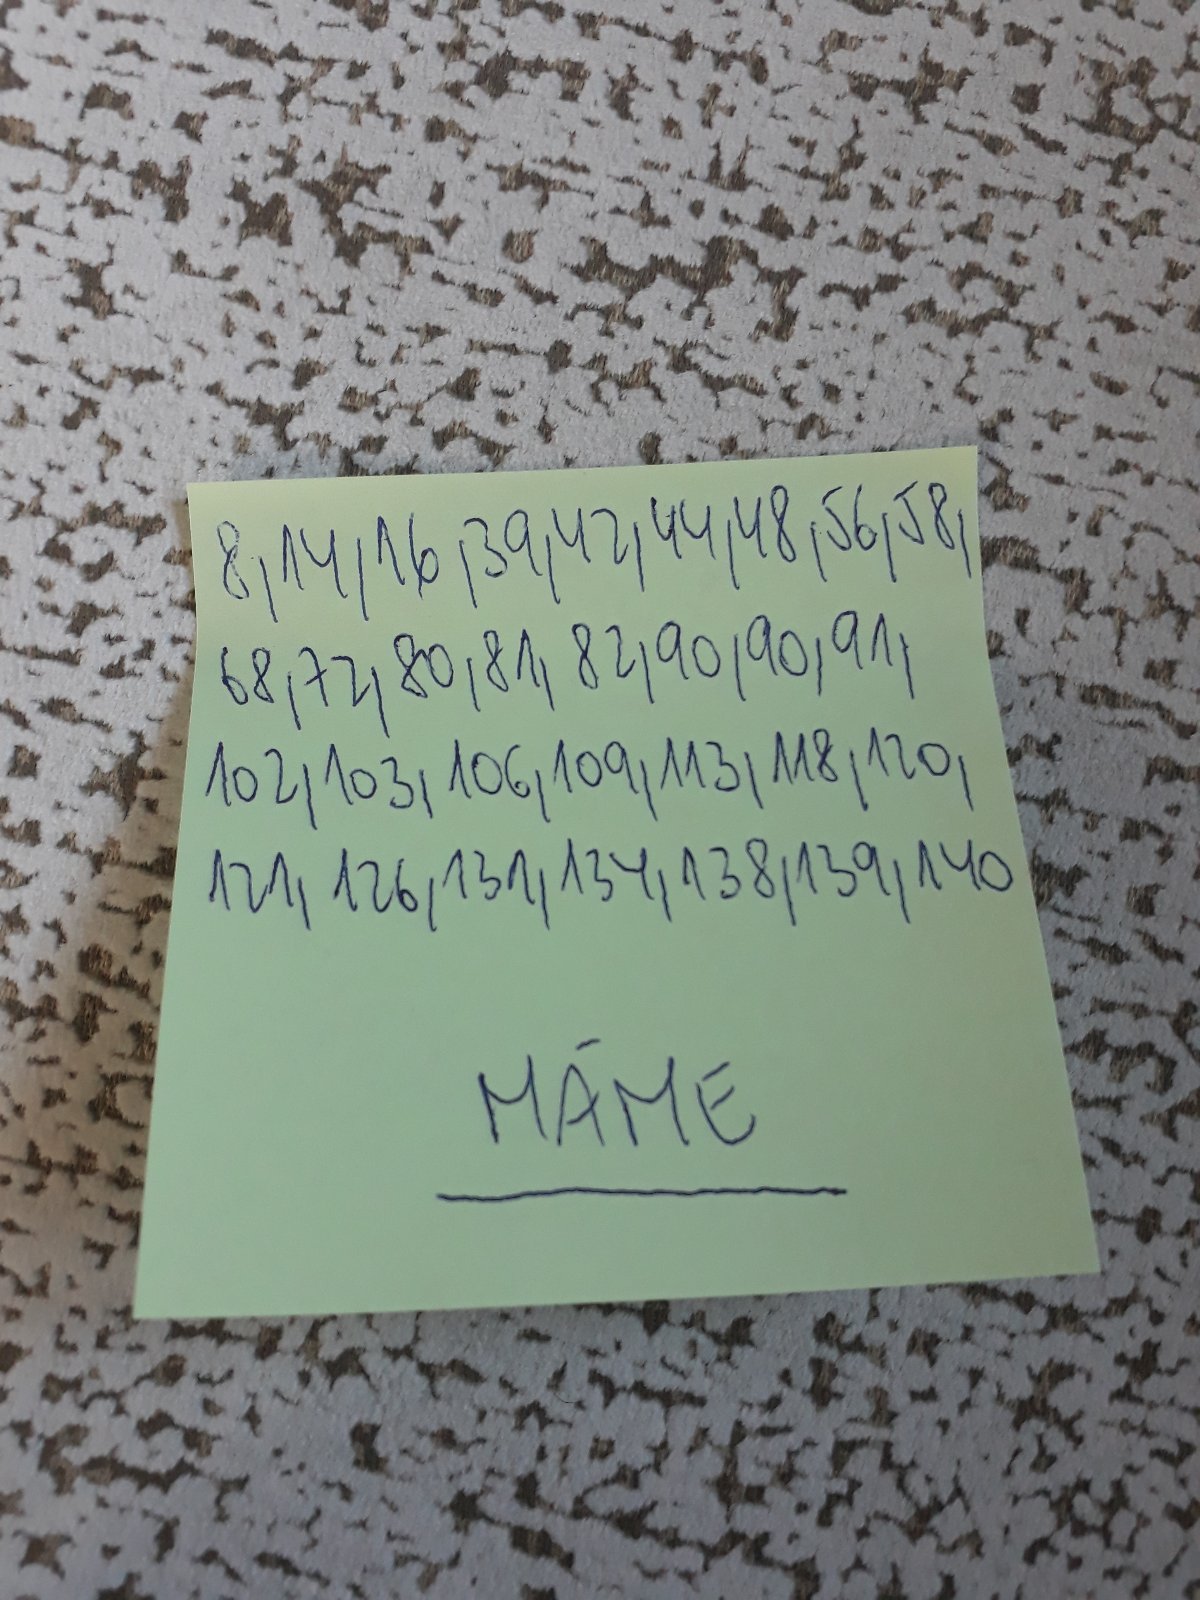 8, 14, 16, 39, 42, 44, 48, 56, 58,
68, 72, 80, 81, 82, 90, 90, 91,
102, 103, 106, 109, 113, 118, 120,
121, 126, 131, 134, 138, 139, 140
MÁME